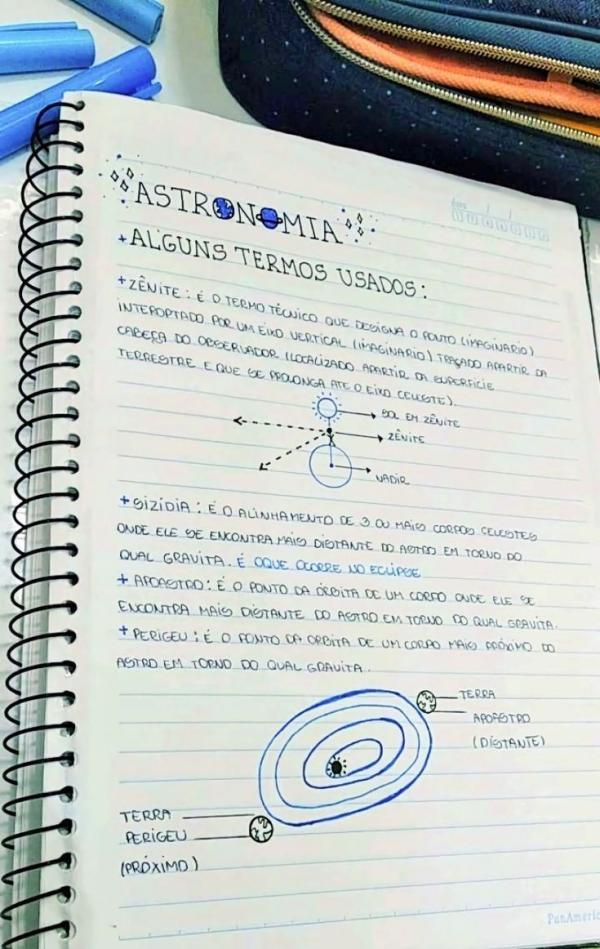 ASTRONOMIA
+ALGUNS TERMOS USADOS:
+ZÊNITE: É O TERMO TÉCNICO QUE DESIGNA O PONTO (IMAGINÁRIO)
INTEROPTADO POR UM EIXO VERTICAL (IMAGINARIO) TRAÇADO APARTIR DA
CABEÇA DO OBSERVADOR (LOCALIZADO APARTIR DA SUPERFICIE
TERRESTRE E QUE SE PROLONGA ATE O EIXO CELESTE).
SOL EM ZÊNITE
ZÊNITE
NADIR
+SIZÍDIA: É O ALINHAMENTO DE 3 OU MAIS CORPOS CELESTES
ONDE ELE SE ENCONTRA MAIS DISTANTE DO ASTRO EM TORNO DO
QUAL GRAVITA. É OQUE OCORRE NO ECLIPSE
+ APOASTRO: É O PONTO DA ÓRBITA DE UM CORPO ONDE ELE SE
ENCONTRA MAIS DISTANTE DO ASTRO EM TORNO DO QUAL GRAVITA.
+ PERIGEU: É O PONTO DA ORBITA DE UM CORPO MAIS PRÓXIMO DO
ASTRO EM TORNO DO QUAL GRAVITA.
TERRA
APOASTRO
(DISTANTE)
TERRA
PERIGEU
(PRÓXIMO)